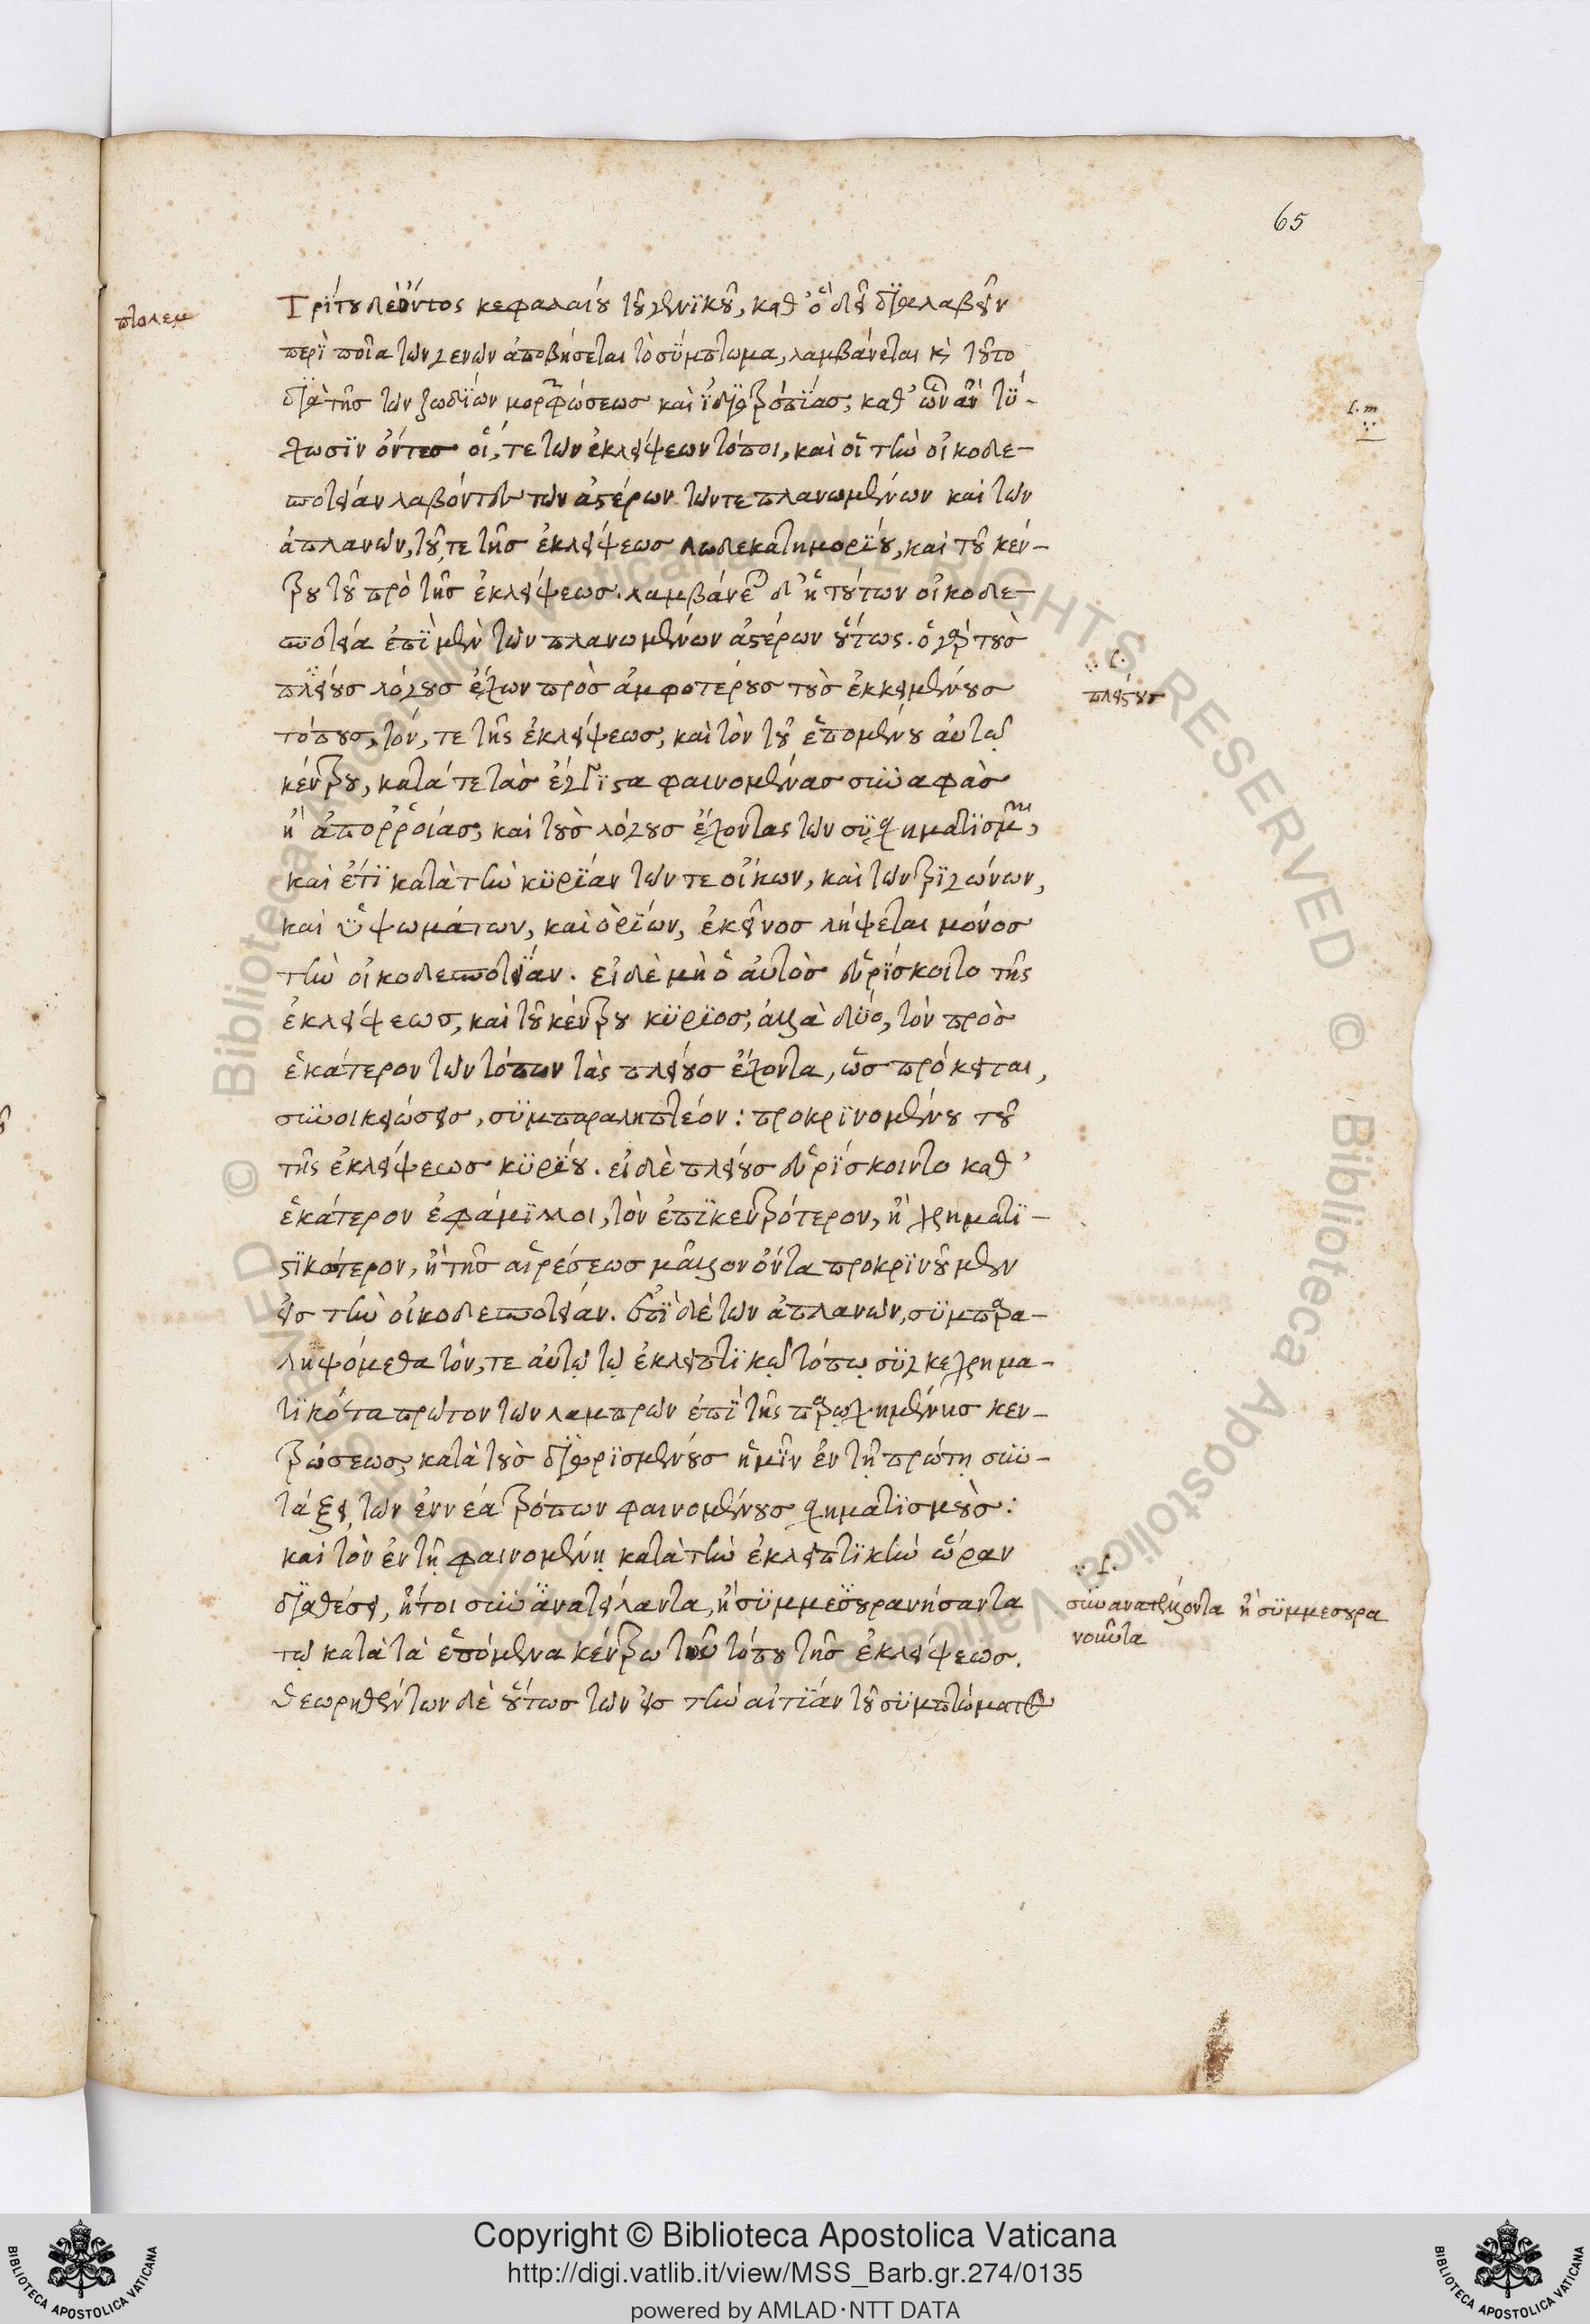 65
πτολεμ
Τρίτου δὲ ὄντος κεφαλαίου τοῦ γενϊκοῦ, καθ' ὃ δεῖ δϊαλαβεῖν
περὶ ποῖα τῶν γενῶν ἀποβήσεται τὸ σύμπτωμα, λαμβάνεται καὶ τοῦτο
δϊὰ τῆς τῶν ζωδΐων μορφώσεως καὶ ϊδϊοτροπΐας, καθ' ὧν ἂν τύ-
χωσϊν ὄντες οἵ, τε τῶν ἐκλείψεων τόποι, καὶ οἳ τὴν οἰκοδε-
ποτείαν λαβόντων τῶν ἀστέρων τῶν τε πλανωμένων καὶ τῶν
ἀπλανῶν, τοῦ, τε τῆς ἐκλείψεως δωδεκατημορΐου, καὶ τοῦ κέν-
τρου τοῦ πρὸ τῆς ἐκλείψεως. λαμβάνεται δ' ἡ τούτων οἰκοδε-
ποτεία ἐπῒ μὲν τῶν πλανωμένων ἀστέρων οὕτως. ὁ γὰρ τοὺς
πλείους λόγους ἔχων πρὸς ἀμφοτέρους τοὺς ἐκκειμένους
τόπους, τόν, τε τῆς ἐκλείψεως, καὶ τὸν τοῦ ἑπομένου αὐτῷ
κέντρου, κατά τε τὰς ἔγγϊστα φαινομένας συναφὰς
ἢ ἀπορροίας, καὶ τοὺς λόγους ἔχοντας τῶν συσχηματϊσμῶν,
καὶ ἔτϊ κατὰ τὴν κυρΐαν τῶν τε οἴκων, καὶ τῶν τρϊγώνων,
καὶ ὑψωμάτων, καὶ ὁρΐων, ἐκεῖνος λήψεται μόνος
τὴν οἰκοδεποτείαν. εἰ δὲ μὴ ὁ αὐτὸς εὑρΐσκοιτο τῆς
ἐκλείψεως, καὶ τοῦ κέντρου κύρϊος, ἀλλὰ δύο, τὸν πρὸς
ἑκάτερον τῶν τόπων τὰς πλείους ἔχοντα, ὡς πρόκειται,
συνοικειώσεις, συμπαραληπτέον: προκρϊνομένου τοῦ
τῆς ἐκλείψεως κυρΐου. εἰ δὲ πλείους εὑρΐσκοιντο καθ'
ἑκάτερον ἐφάμϊλλοι, τὸν ἐπϊκεντρότερον, ἢ χρηματϊ-
στϊκότερον, ἢ τῆς αἱρέσεως μᾶλλον ὄντα προκρϊνοῦμεν
εἰς τὴν οἰκοδεποτείαν. ἐπῒ δὲ τῶν ἀπλανῶν, συμπαρα-
ληψόμεθα τόν, τε αὐτῷ τῷ ἐκλειπτϊκῷ τόπῳ συγκεχρημα-
τϊκότα πρῶτον τῶν λαμπρῶν ἐπῒ τῆς παρῳχημένης κεν-
τρώσεως κατὰ τοὺς δϊωρϊσμένους ἡμῖν ἐν τῇ πρώτῃ συν-
τάξει, τῶν ἐννέα τρόπων φαινομένους σχηματϊσμούς:
καὶ τὸν ἐν τῇ φαινομένῃ κατὰ τὴν ἐκλειπτϊκὴν ὥραν
δϊαθέσει, ἤτοι συνανατείλαντα, ἢ συμμεσουρανήσαντα
τῷ κατὰ τὰ ἑπόμενα κέντρω τοῦ τόπου τῆς ἐκλείψεως.
Θεωρηθέντων δὲ οὕτως τῶν εἰς τὴν αἰτΐαν τοῦ συμπτώματος
πλείστους
συνανατέλλοντα ἢ συμμεσουρα
νοῦντα
Copyright © Biblioteca Apostolica Vaticana
http://digi.vatlib.it/view/MSS_Barb.gr.274/0135
powered by AMLAD·NTT DATA